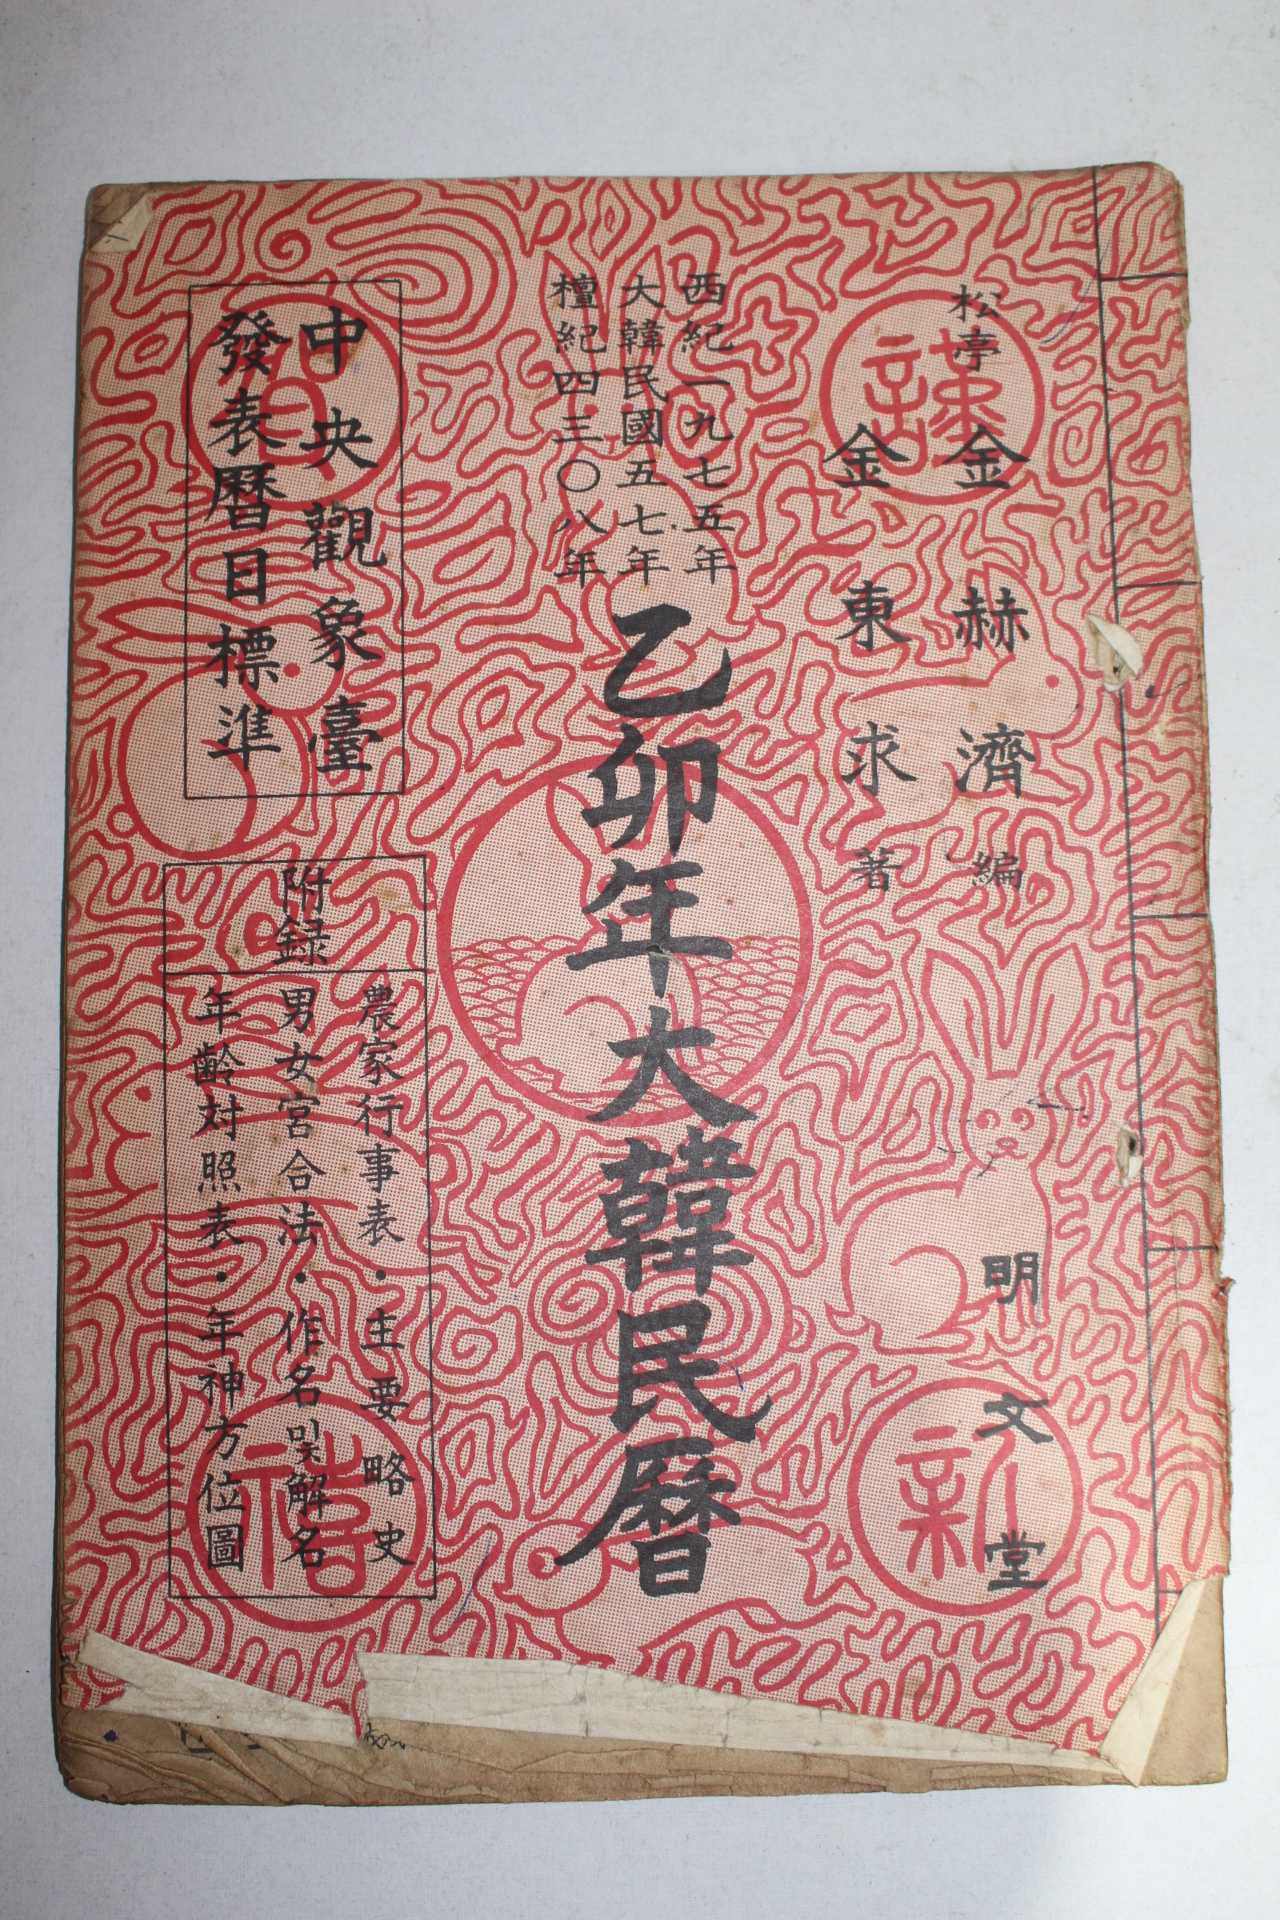 松亭 金赫濟 編
金東求 著
明文堂
西紀一九七五年
大韓民國五七年
檀紀四三〇八年
乙卯年大韓民曆
中央觀象臺
發表曆日標準
附録
農家行事表·主要略史
男女宮合法·作名및解名
年齡対照表·年神方位圖
謹
賀
新
禧